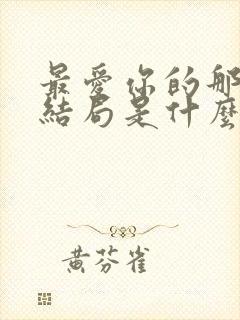 最愛你的那
結局是什麼
黃芬雀